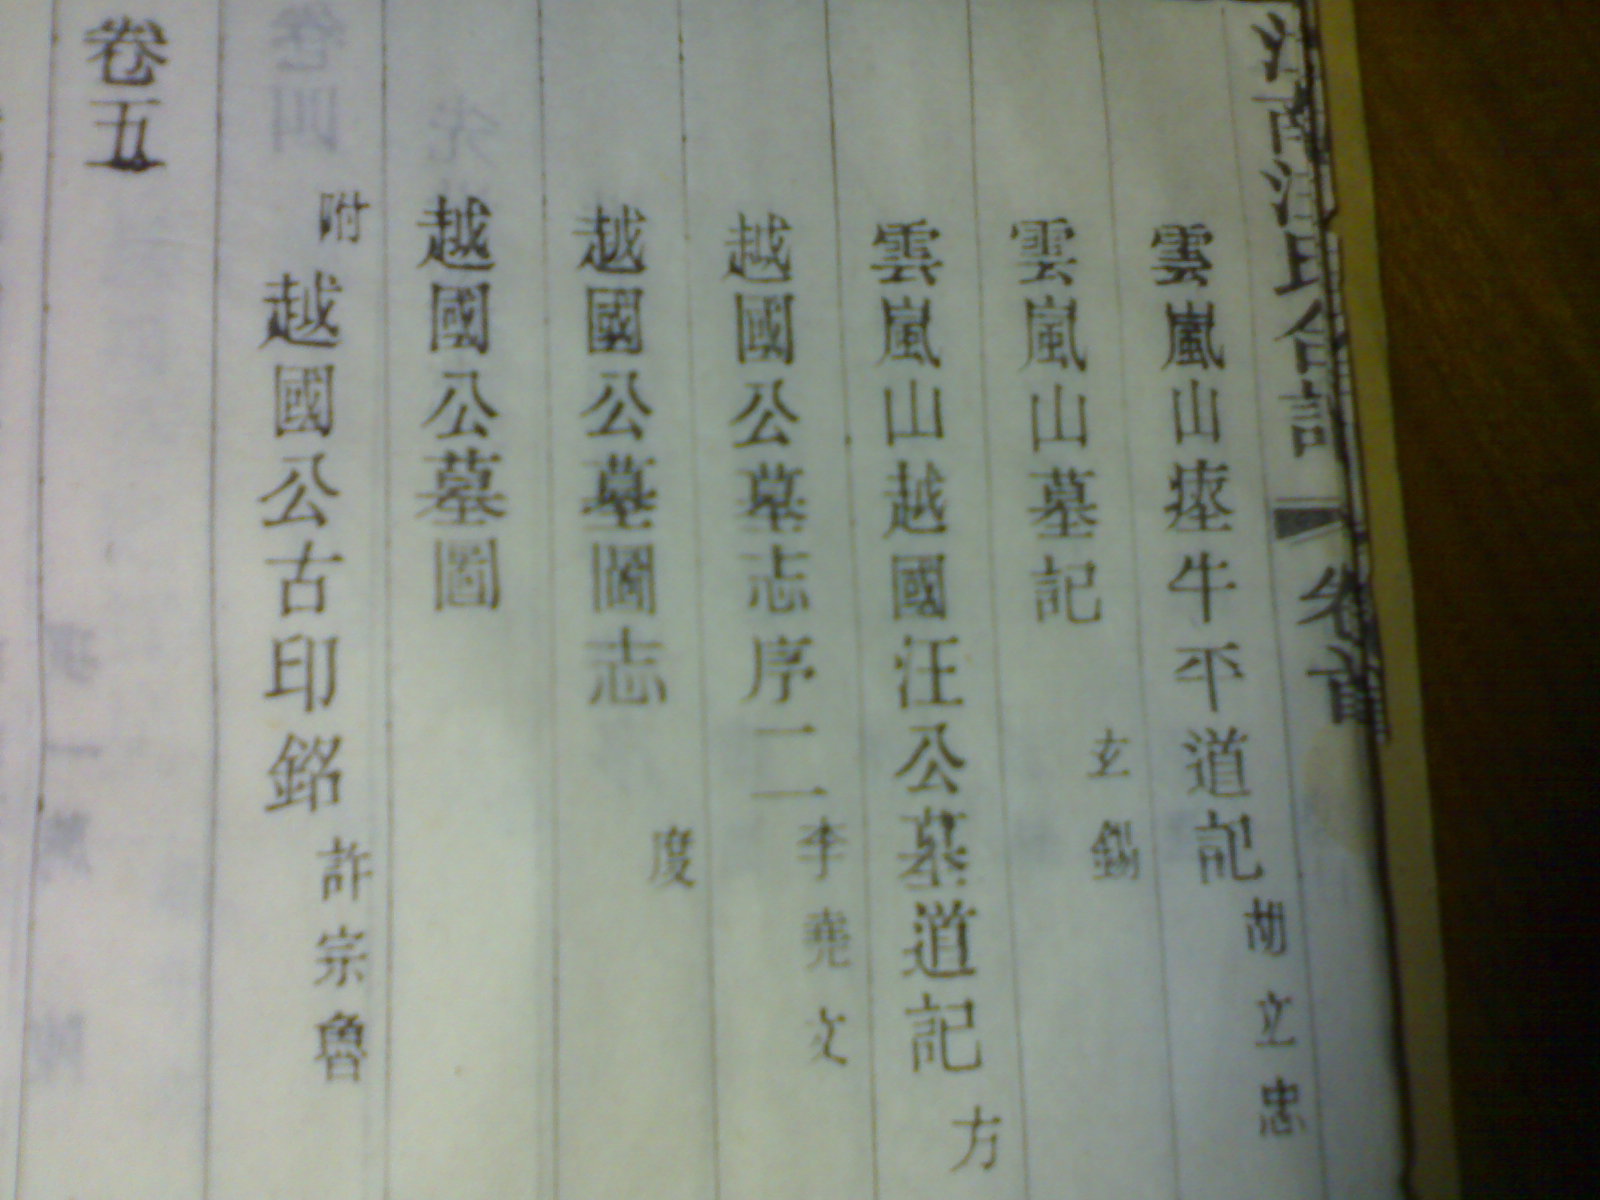 氏合譜 卷首
雲嵐山瘞牛平道記 胡立忠
雲嵐山墓記 玄錫
雲嵐山越國汪公墓道記 方
越國公墓志序二 李堯文
越國公墓圖志 度
越國公墓圖
附 越國公古印銘 許宗魯
卷五